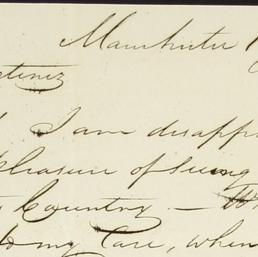 Manchester
tinez
I am disapp
pleasure of seeing
Country — Wh
to my Care, when